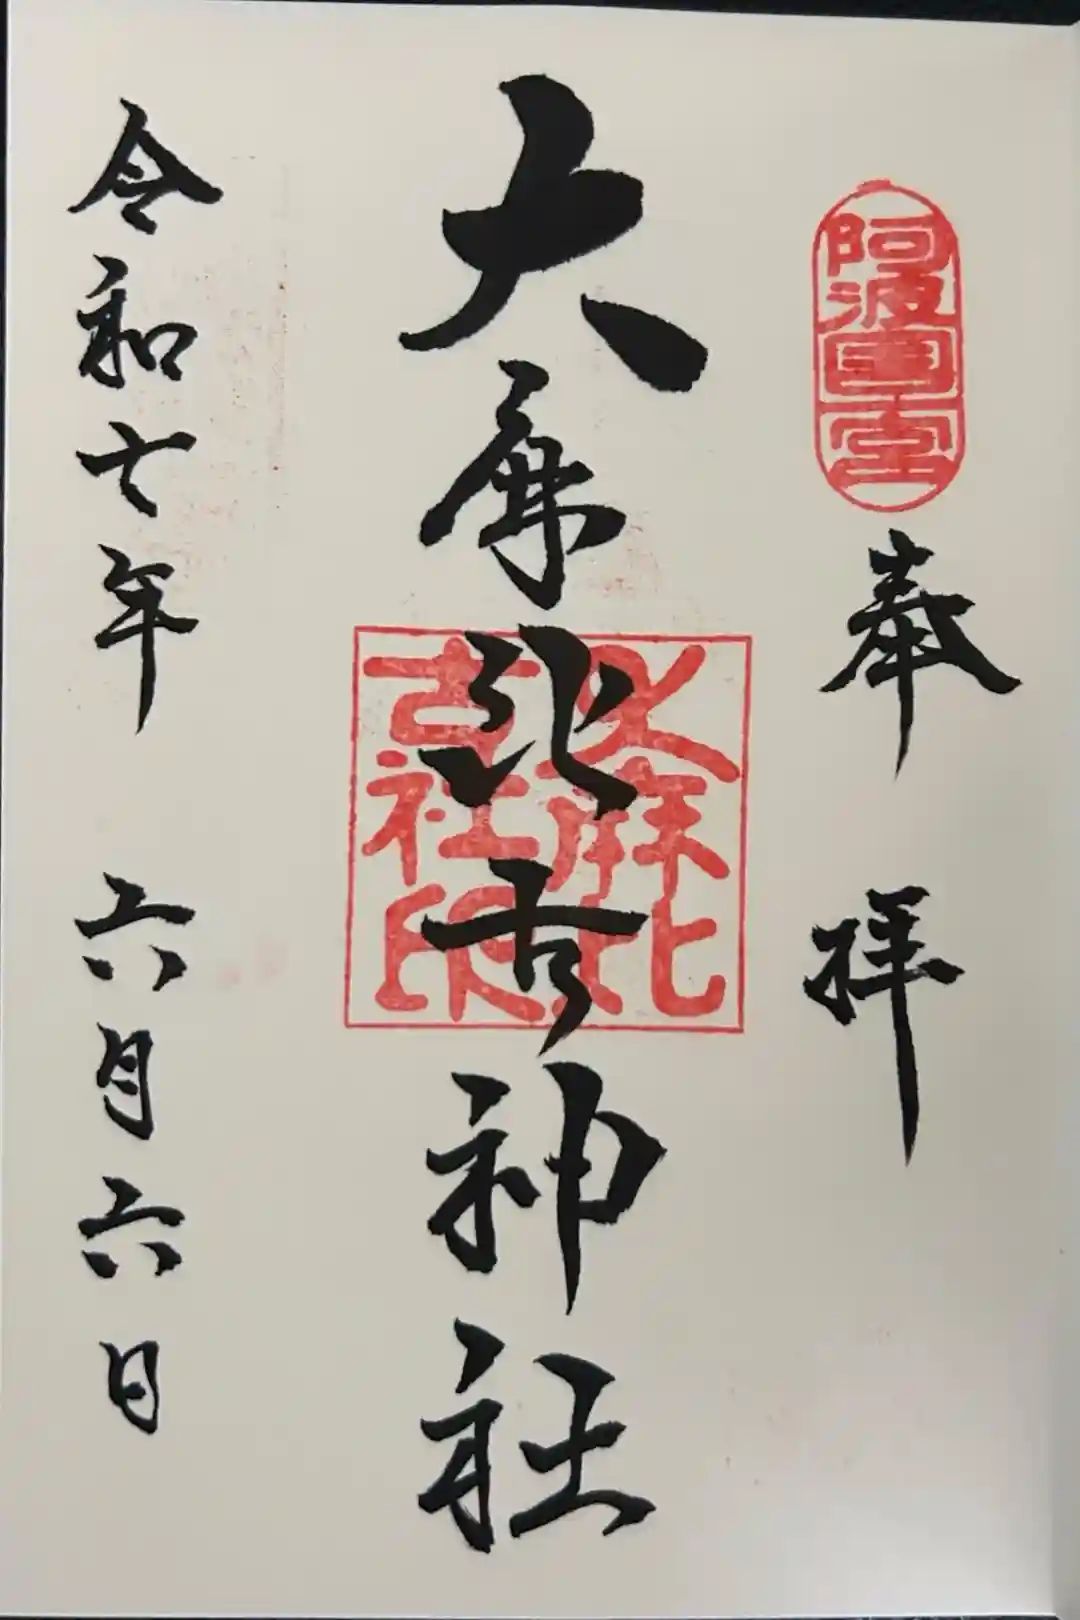 阿波国一宮
奉拝
大麻比古神社
大麻比古社印
令和七年 六月六日